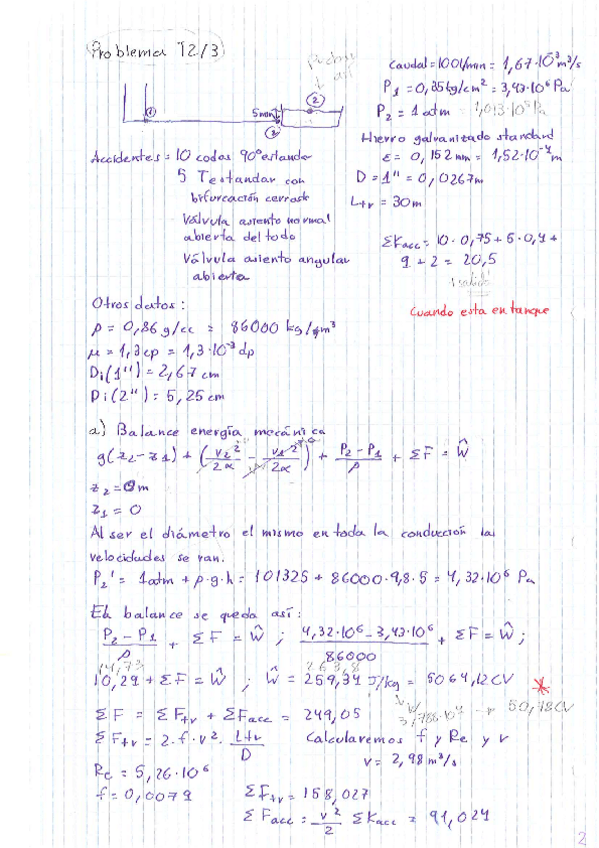 Problema T2/3
Pudrá
↓ así
①
②
5mm
②
Caudal = 100 l/min = 1,67·10⁻³ m³/s
P₁ = 0,35 kg/cm² = 3,43·10⁶ Pa
P₂ = 1 atm = 1,013·10⁵ Pa
Hierro galvanizado standard
ε = 0,152 mm = 1,52·10⁻⁴ m
D = 1" = 0,0267m
Ltr = 30m
Accidentes = 10 codos 90º estandar
5 T estandar con
bifurcación cerrada
Válvula asiento normal
abierta del todo
Válvula asiento angular
abierta
ΣKacc = 10·0,75 + 5·0,4 +
9 + 2 = 20,5
1 salida
Cuando esta en tanque
Otros datos:
ρ = 0,86 g/cc = 86000 kg/m³
μ = 1,3 cp = 1,3·10⁻³ dp
Di(1") = 2,67 cm
Di(2") = 5,25 cm
a) Balance energía mecánica
g(z₂-z₁) + (v₂²/2α - v₁²/2α) + (P₂-P₁)/ρ + ΣF = Ŵ
z₂ = 0m
z₁ = 0
Al ser el diámetro el mismo en toda la conducción las
velocidades se van.
P₂' = 1atm + ρ·g·h = 101325 + 86000·9,8·5 = 4,32·10⁶ Pa
El balance se queda así:
(P₂-P₁)/ρ + ΣF = Ŵ ; (4,32·10⁶ - 3,43·10⁶)/86000 + ΣF = Ŵ ;
14,73
263,8
10,29 + ΣF = Ŵ ; Ŵ = 259,34 J/kg = 5064,12CV
3,788·10⁴ → 50,78CV
ΣF = ΣFtr + ΣFacc = 249,05
ΣFtr = 2·f·v²·Ltr/D Calcularemos f y Re y v
v = 2,98 m³/s
Re = 5,26·10⁶
f = 0,0079
ΣFtr = 158,027
ΣFacc = v²/2 ΣKacc = 91,024
2